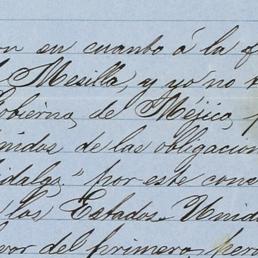 on en cuanto á la f
Mesilla, y yo no
obierno, de Méjico,
nidos de las obligacion
idalgo." por este conc
los Estados Unid
vor del primero, pero